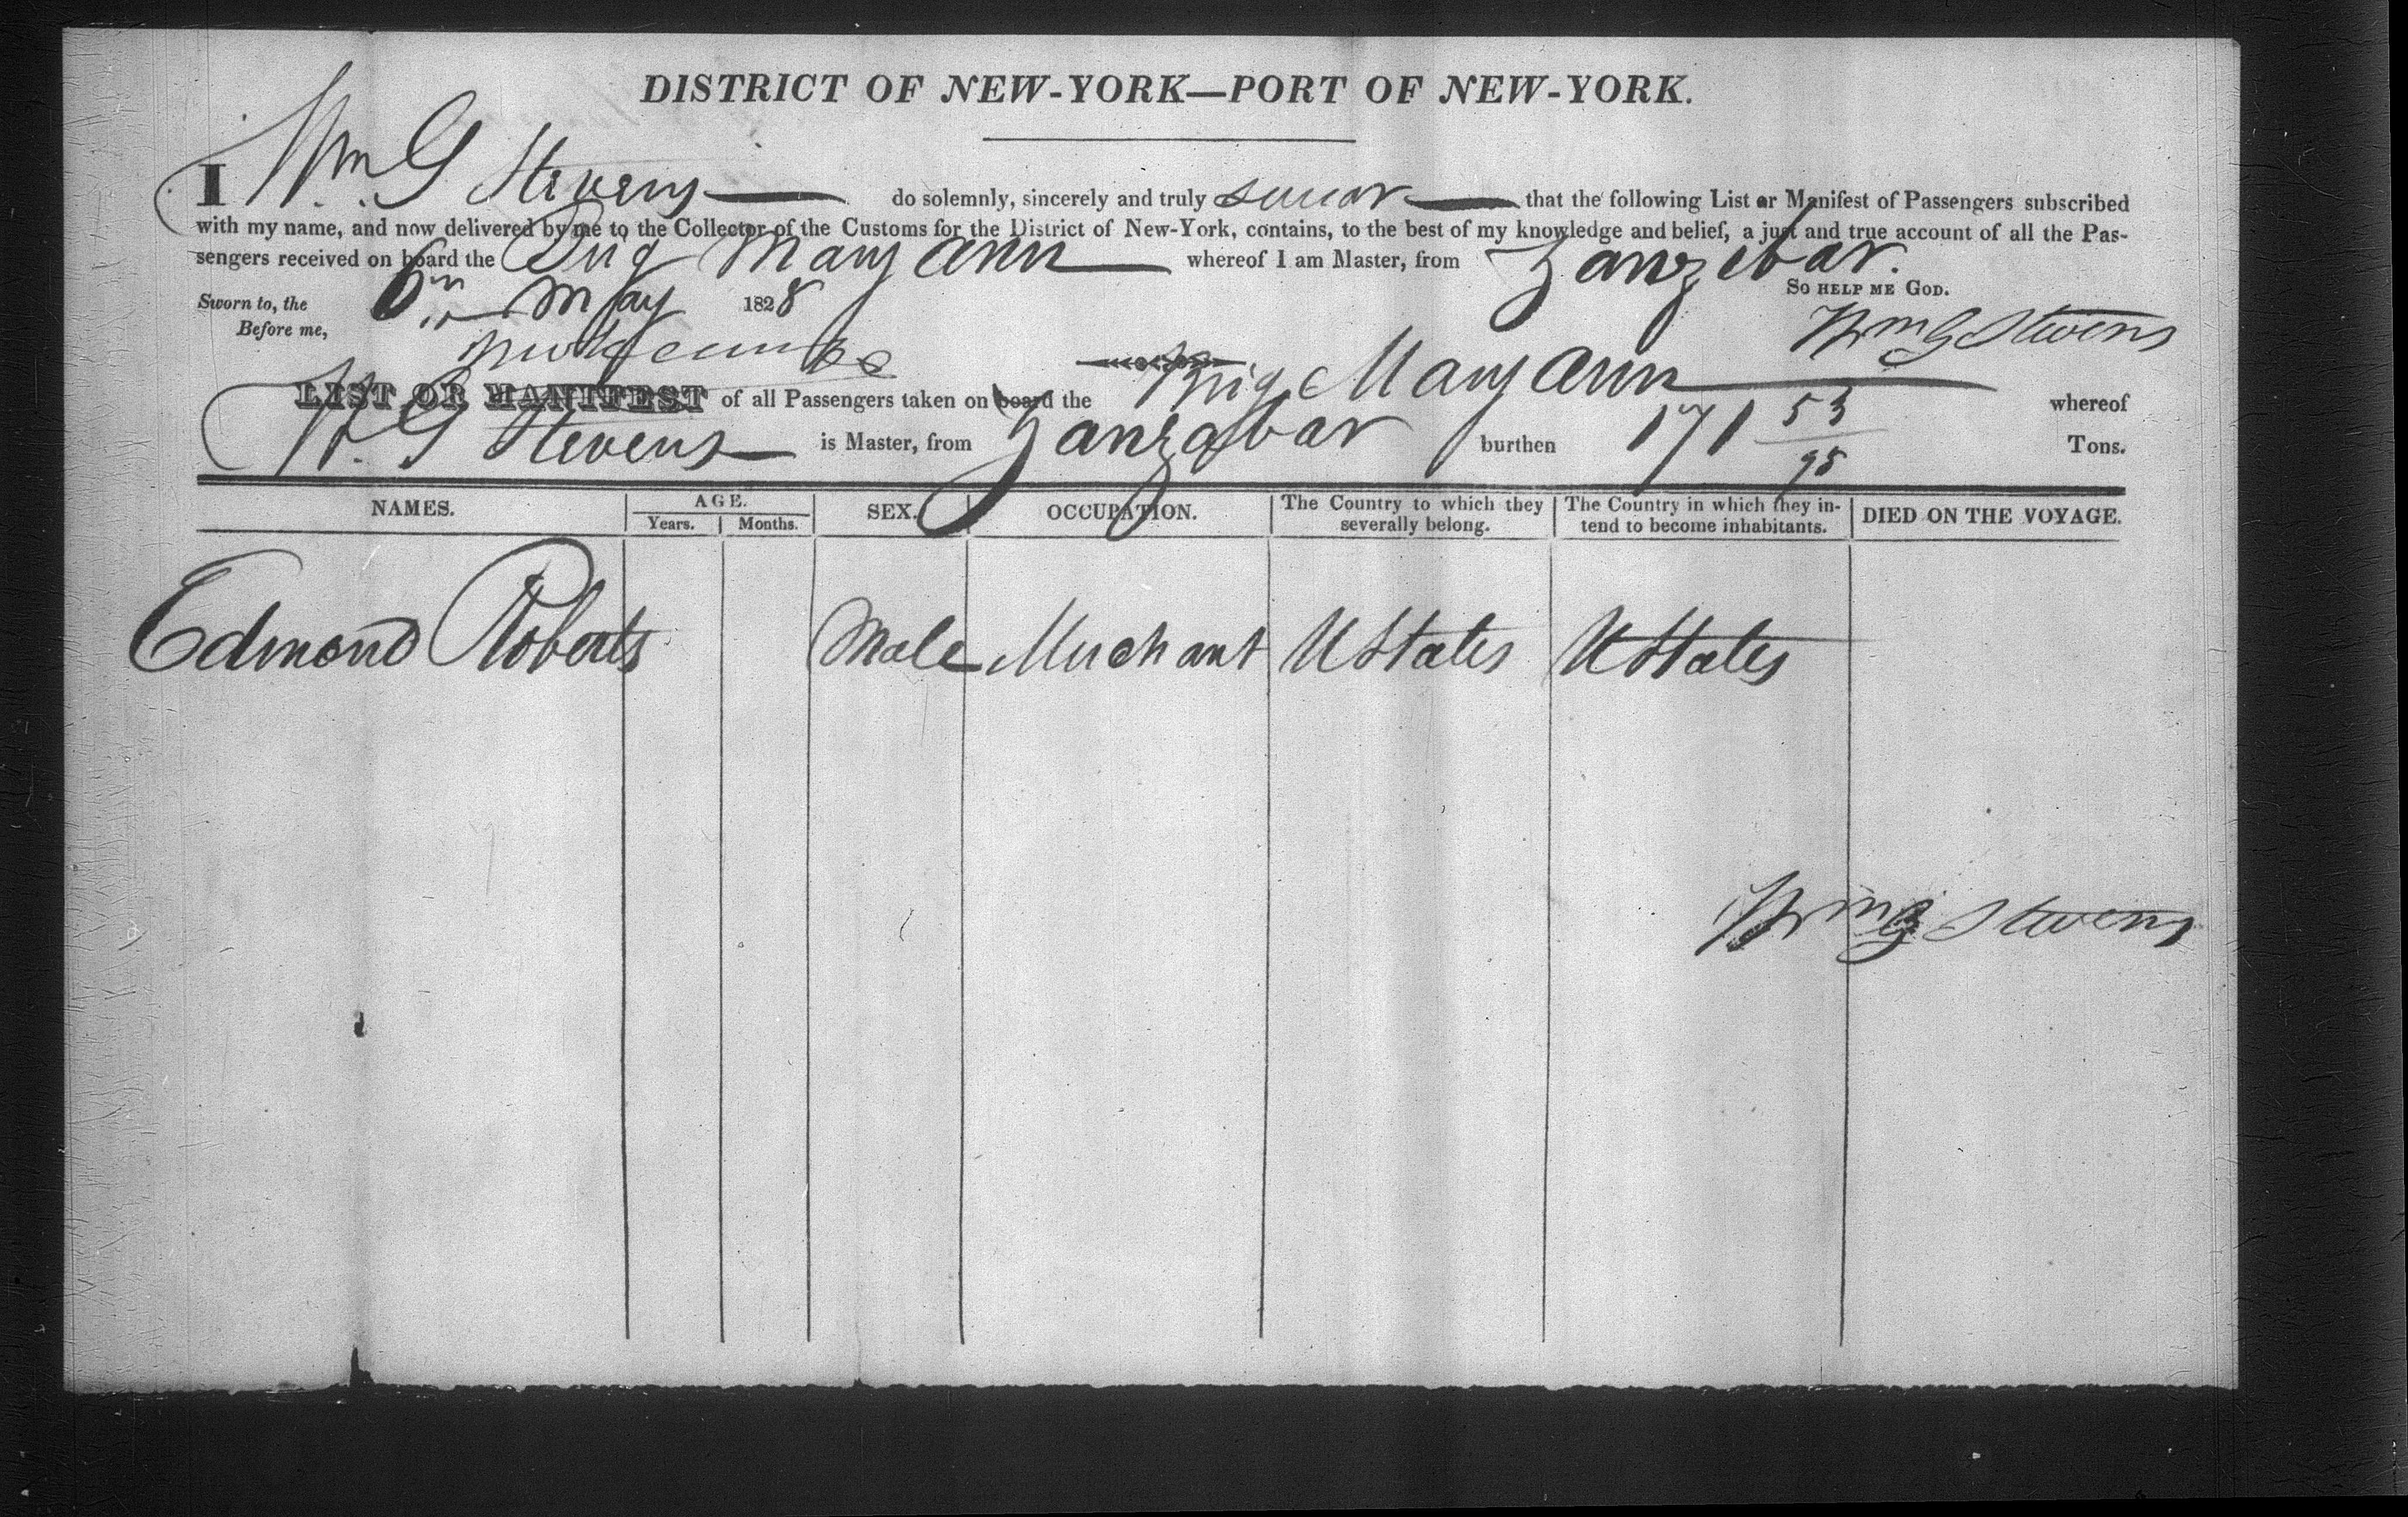 DISTRICT OF NEW-YORK—PORT OF NEW-YORK.
I Wm. G Stevens do solemnly, sincerely and truly swear that the following List or Manifest of Passengers subscribed
with my name, and now delivered by me to the Collector of the Customs for the District of New-York, contains, to the best of my knowledge and belief, a just and true account of all the Pas-
sengers received on board the Brig Mary Ann whereof I am Master, from Zanzebar.
So HELP ME GOD.
Sworn to, the 6th May 1828
Before me,
Wm G Stevens
LIST OR MANIFEST of all Passengers taken on board the Brig Mary Ann whereof
W. G Stevens is Master, from Zanzabar burthen 171 53/95 Tons.
NAMES. AGE. Years. Months. SEX. OCCUPATION. The Country to which they severally belong. The Country in which they in-tend to become inhabitants. DIED ON THE VOYAGE.
Edmond Roberts Male Merchant U States U States
Wm G Stevens